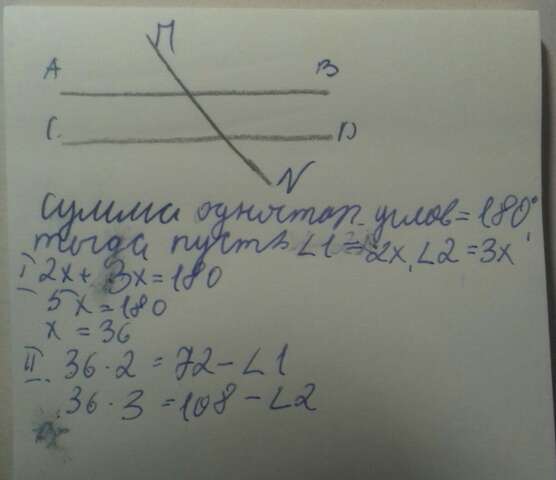 М
A B
C. D
N
Сумма одностор. углов = 180°,
тогда пусть ∠1 = 2x, ∠2 = 3x
I 2x + 3x = 180
5x = 180
x = 36
II. 36 · 2 = 72 – ∠1
36 · 3 = 108 – ∠2